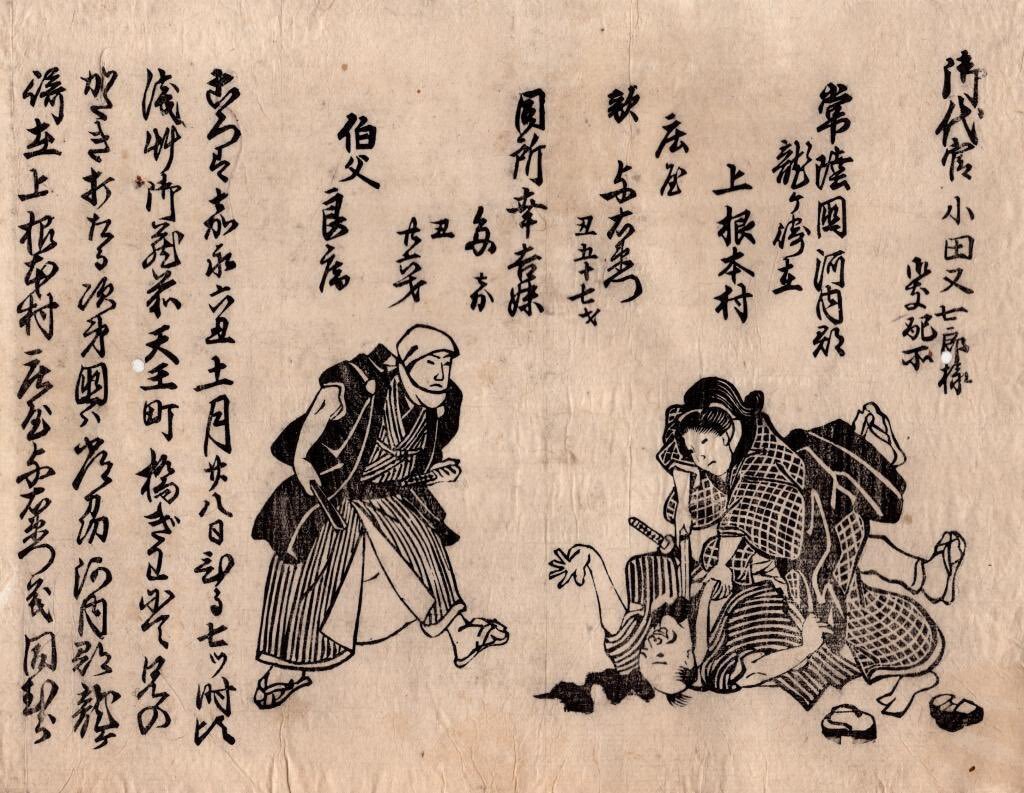 御代官 小田又七郎様
御支配所
常陸国河内郡
龍ヶ崎在
上根本村
庄屋
敵 与右衛門
丑五十七才
同所幸吉妹
たか
丑
廿六才
伯父
良庵
ころは嘉永六丑十一月廿八日ひる七ツ時比
浅艸御蔵前天王町橋ぎわニて兄の
かたき打たる次第国ハ常州河内郡龍ヶ
崎在上根本村庄屋与右衛門義同村